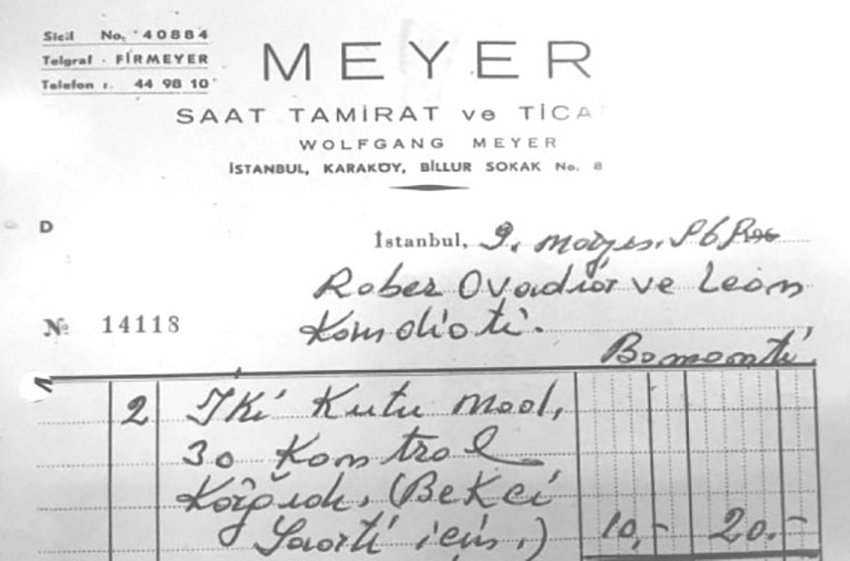 Sicil No. 40884
Telgraf · FİRMEYER
Telefon : 44 98 10
MEYER
SAAT TAMİRAT ve TİCA
WOLFGANG MEYER
İSTANBUL, KARAKÖY, BİLLUR SOKAK No. 8
D
İstanbul, 9. mayıs.
Rober Ovadia ve Leon
№ 14118
Bomonti
2 İki Kutu
30 Kontrol
(Bekci
Saati icin.) 10,- 20.-